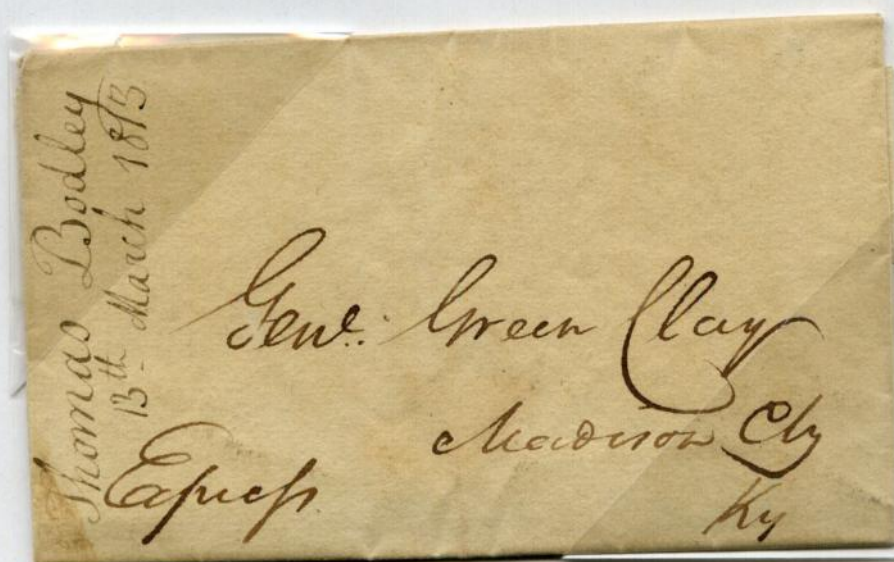 Thomas Bodley
13th March 1813
Genl: Green Clay
Madison Cty
Ky
Express